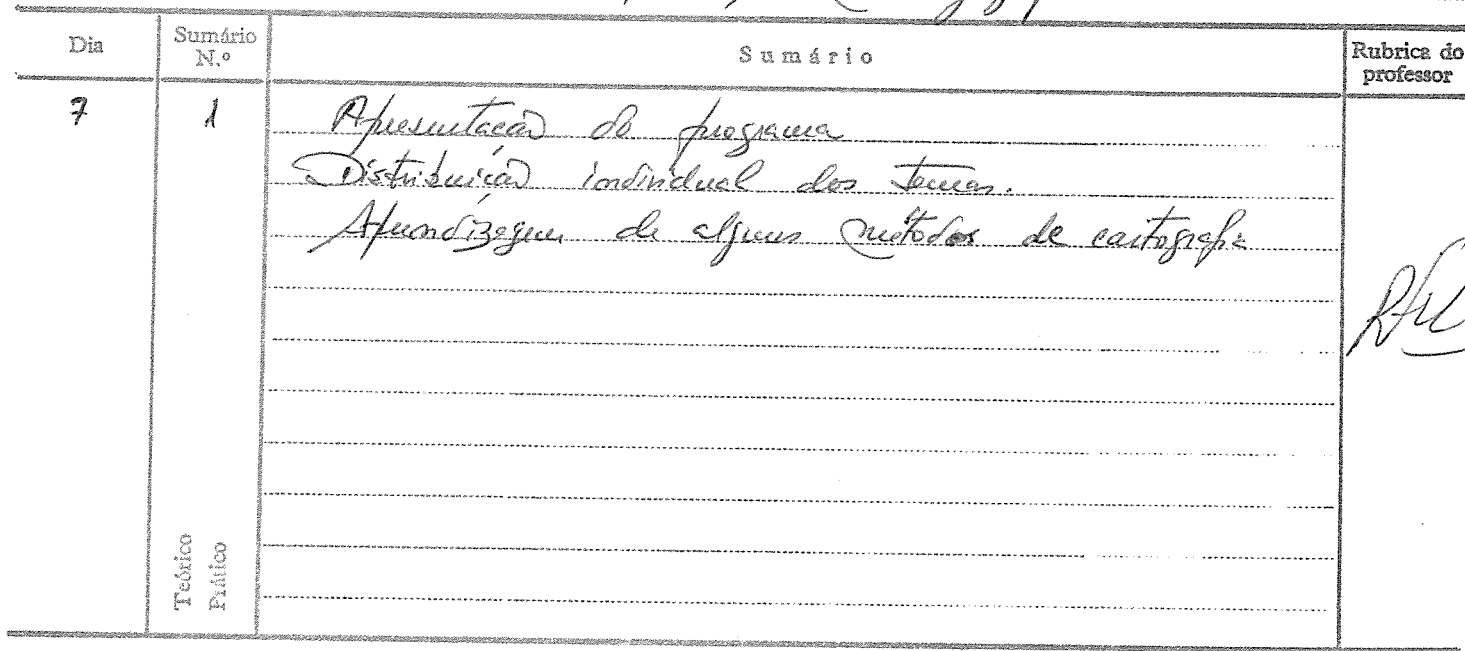 Dia
Sumário N.º
Sumário
Rubrica do professor
7
1
Apresentação do programa
Distribuição individual dos temas.
Aprendizagem de alguns métodos de cartografia
Teórico
Prático